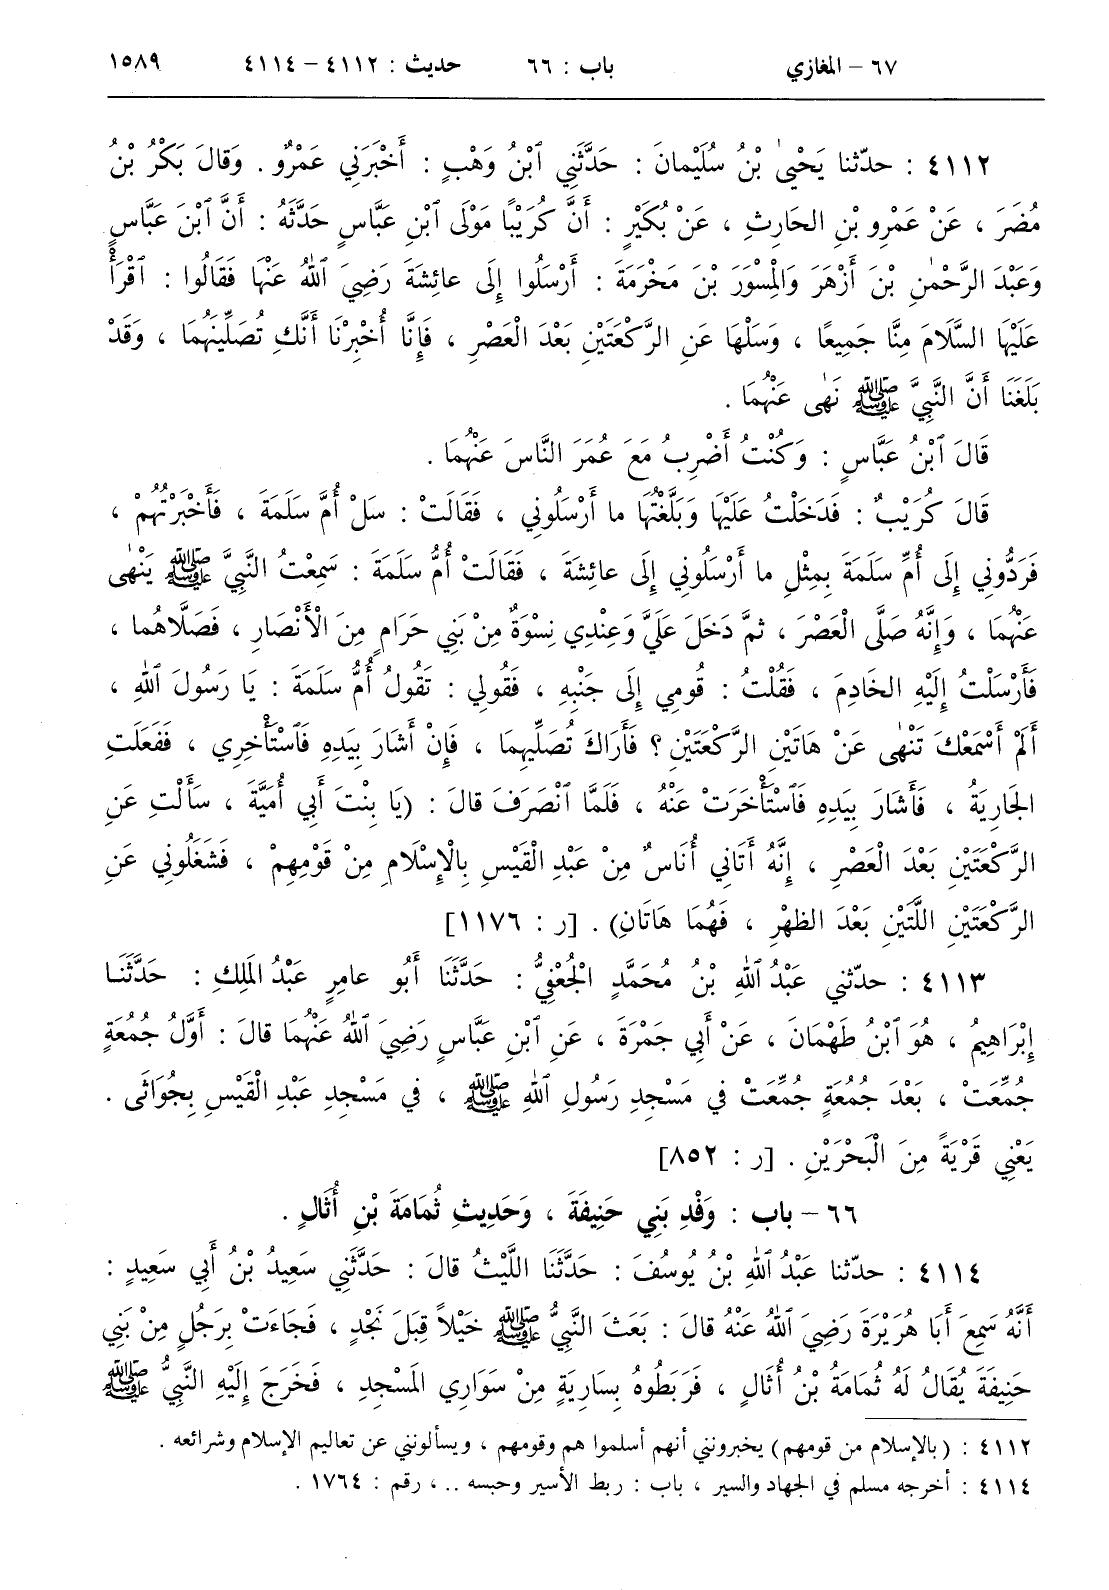 ٦٧ – المغازي باب : ٦٦ حديث : ٤١١٢ – ٤١١٤ ١٥٨٩
٤١١٢ : حدّثنا يَحْيىٰ بْنُ سُلَيْمانَ : حَدَّثَنِي ٱبْنُ وَهْبٍ : أَخْبَرَنِي عَمْرٌو . وَقالَ بَكْرُ بْنُ
مُضَرَ ، عَنْ عَمْرِو بْنِ الحَارِثِ ، عَنْ بُكَيْرٍ : أَنَّ كُرَيْبًا مَوْلَى ٱبْنِ عَبَّاسٍ حَدَّثَهُ : أَنَّ ٱبْنَ عَبَّاسٍ
وَعَبْدَ الرَّحْمٰنِ بْنَ أَزْهَرَ وَالْمِسْوَرَ بْنَ مَخْرَمَةَ : أَرْسَلُوا إِلَى عائِشَةَ رَضِيَ ٱللهُ عَنْهَا فَقَالُوا : ٱقْرَأْ
عَلَيْهَا السَّلَامَ مِنَّا جَمِيعًا ، وَسَلْهَا عَنِ الرَّكْعَتَيْنِ بَعْدَ الْعَصْرِ ، فَإِنَّا أُخْبِرْنَا أَنَّكِ تُصَلِّينَهُمَا ، وَقَدْ
بَلَغَنَا أَنَّ النَّبِيَّ ﷺ نَهٰى عَنْهُمَا .
قَالَ ٱبْنُ عَبَّاسٍ : وَكُنْتُ أَضْرِبُ مَعَ عُمَرَ النَّاسَ عَنْهُمَا .
قَالَ كُرَيْبٌ : فَدَخَلْتُ عَلَيْهَا وَبَلَّغْتُهَا ما أَرْسَلُونِي ، فَقَالَتْ : سَلْ أُمَّ سَلَمَةَ ، فَأَخْبَرْتُهُمْ ،
فَرَدُّونِي إِلَى أُمِّ سَلَمَةَ بِمِثْلِ ما أَرْسَلُونِي إِلَى عائِشَةَ ، فَقَالَتْ أُمُّ سَلَمَةَ : سَمِعْتُ النَّبِيَّ ﷺ يَنْهٰى
عَنْهُمَا ، وَإِنَّهُ صَلَّى الْعَصْرَ ، ثمَّ دَخَلَ عَلَيَّ وَعِنْدِي نِسْوَةٌ مِنْ بَنِي حَرَامٍ مِنَ الْأَنْصَارِ ، فَصَلَّاهُما ،
فَأَرْسَلْتُ إِلَيْهِ الخَادِمَ ، فَقُلْتُ : قُومِي إِلَى جَنْبِهِ ، فَقُولِي : تَقُولُ أُمُّ سَلَمَةَ : يَا رَسُولَ ٱللهِ ،
أَلَمْ أَسْمَعْكَ تَنْهٰى عَنْ هَاتَيْنِ الرَّكْعَتَيْنِ ؟ فَأَرَاكَ تُصَلِّيهِمَا ، فَإِنْ أَشَارَ بِيَدِهِ فَٱسْتَأْخِرِي ، فَفَعَلَتِ
الجَارِيَةُ ، فَأَشَارَ بِيَدِهِ فَٱسْتَأْخَرَتْ عَنْهُ ، فَلَمَّا ٱنْصَرَفَ قالَ : (يَا بِنْتَ أَبِي أُمَيَّةَ ، سَأَلْتِ عَنِ
الرَّكْعَتَيْنِ بَعْدَ الْعَصْرِ ، إِنَّهُ أَتَانِي أُنَاسٌ مِنْ عَبْدِ الْقَيْسِ بِالْإِسْلَامِ مِنْ قَوْمِهِمْ ، فَشَغَلُونِي عَنِ
الرَّكْعَتَيْنِ اللَّتَيْنِ بَعْدَ الظهْرِ ، فَهُمَا هَاتَانِ) . [ر : ١١٧٦]
٤١١٣ : حدّثني عَبْدُ ٱللهِ بْنُ مُحَمَّدٍ الْجُعْفِيُّ : حَدَّثَنَا أَبُو عامِرٍ عَبْدُ المَلِكِ : حَدَّثَنَا
إِبْرَاهِيمُ ، هُوَ ٱبْنُ طَهْمَانَ ، عَنْ أَبِي جَمْرَةَ ، عَنِ ٱبْنِ عَبَّاسٍ رَضِيَ ٱللهُ عَنْهُمَا قالَ : أَوَّلُ جُمُعَةٍ
جُمِّعَتْ ، بَعْدَ جُمُعَةٍ جُمِّعَتْ في مَسْجِدِ رَسُولِ ٱللهِ ﷺ ، في مَسْجِدِ عَبْدِ الْقَيْسِ بِجُوَاثَى .
يَعْنِي قَرْيَةً مِنَ الْبَحْرَيْنِ . [ر : ٨٥٢]
٦٦ – باب : وَفْدِ بَنِي حَنِيفَةَ ، وَحَدِيثِ ثُمَامَةَ بْنِ أُثَالٍ .
٤١١٤ : حدّثنا عَبْدُ ٱللهِ بْنُ يُوسُفَ : حَدَّثَنَا اللَّيْثُ قالَ : حَدَّثَنِي سَعِيدُ بْنُ أَبِي سَعِيدٍ :
أَنَّهُ سَمِعَ أَبَا هُرَيْرَةَ رَضِيَ ٱللهُ عَنْهُ قالَ : بَعَثَ النَّبِيُّ ﷺ خَيْلاً قِبَلَ نَجْدٍ ، فَجَاءَتْ بِرَجُلٍ مِنْ بَنِي
حَنِيفَةَ يُقَالُ لَهُ ثُمَامَةُ بْنُ أُثَالٍ ، فَرَبَطُوهُ بِسَارِيَةٍ مِنْ سَوَارِي المَسْجِدِ ، فَخَرَجَ إِلَيْهِ النَّبِيُّ ﷺ
٤١١٢ : (بالإسلام من قومهم) يخبرونني أنهم أسلموا هم وقومهم ، ويسألونني عن تعاليم الإسلام وشرائعه .
٤١١٤ : أخرجه مسلم في الجهاد والسير ، باب : ربط الأسير وحبسه .. ، رقم : ١٧٦٤ .